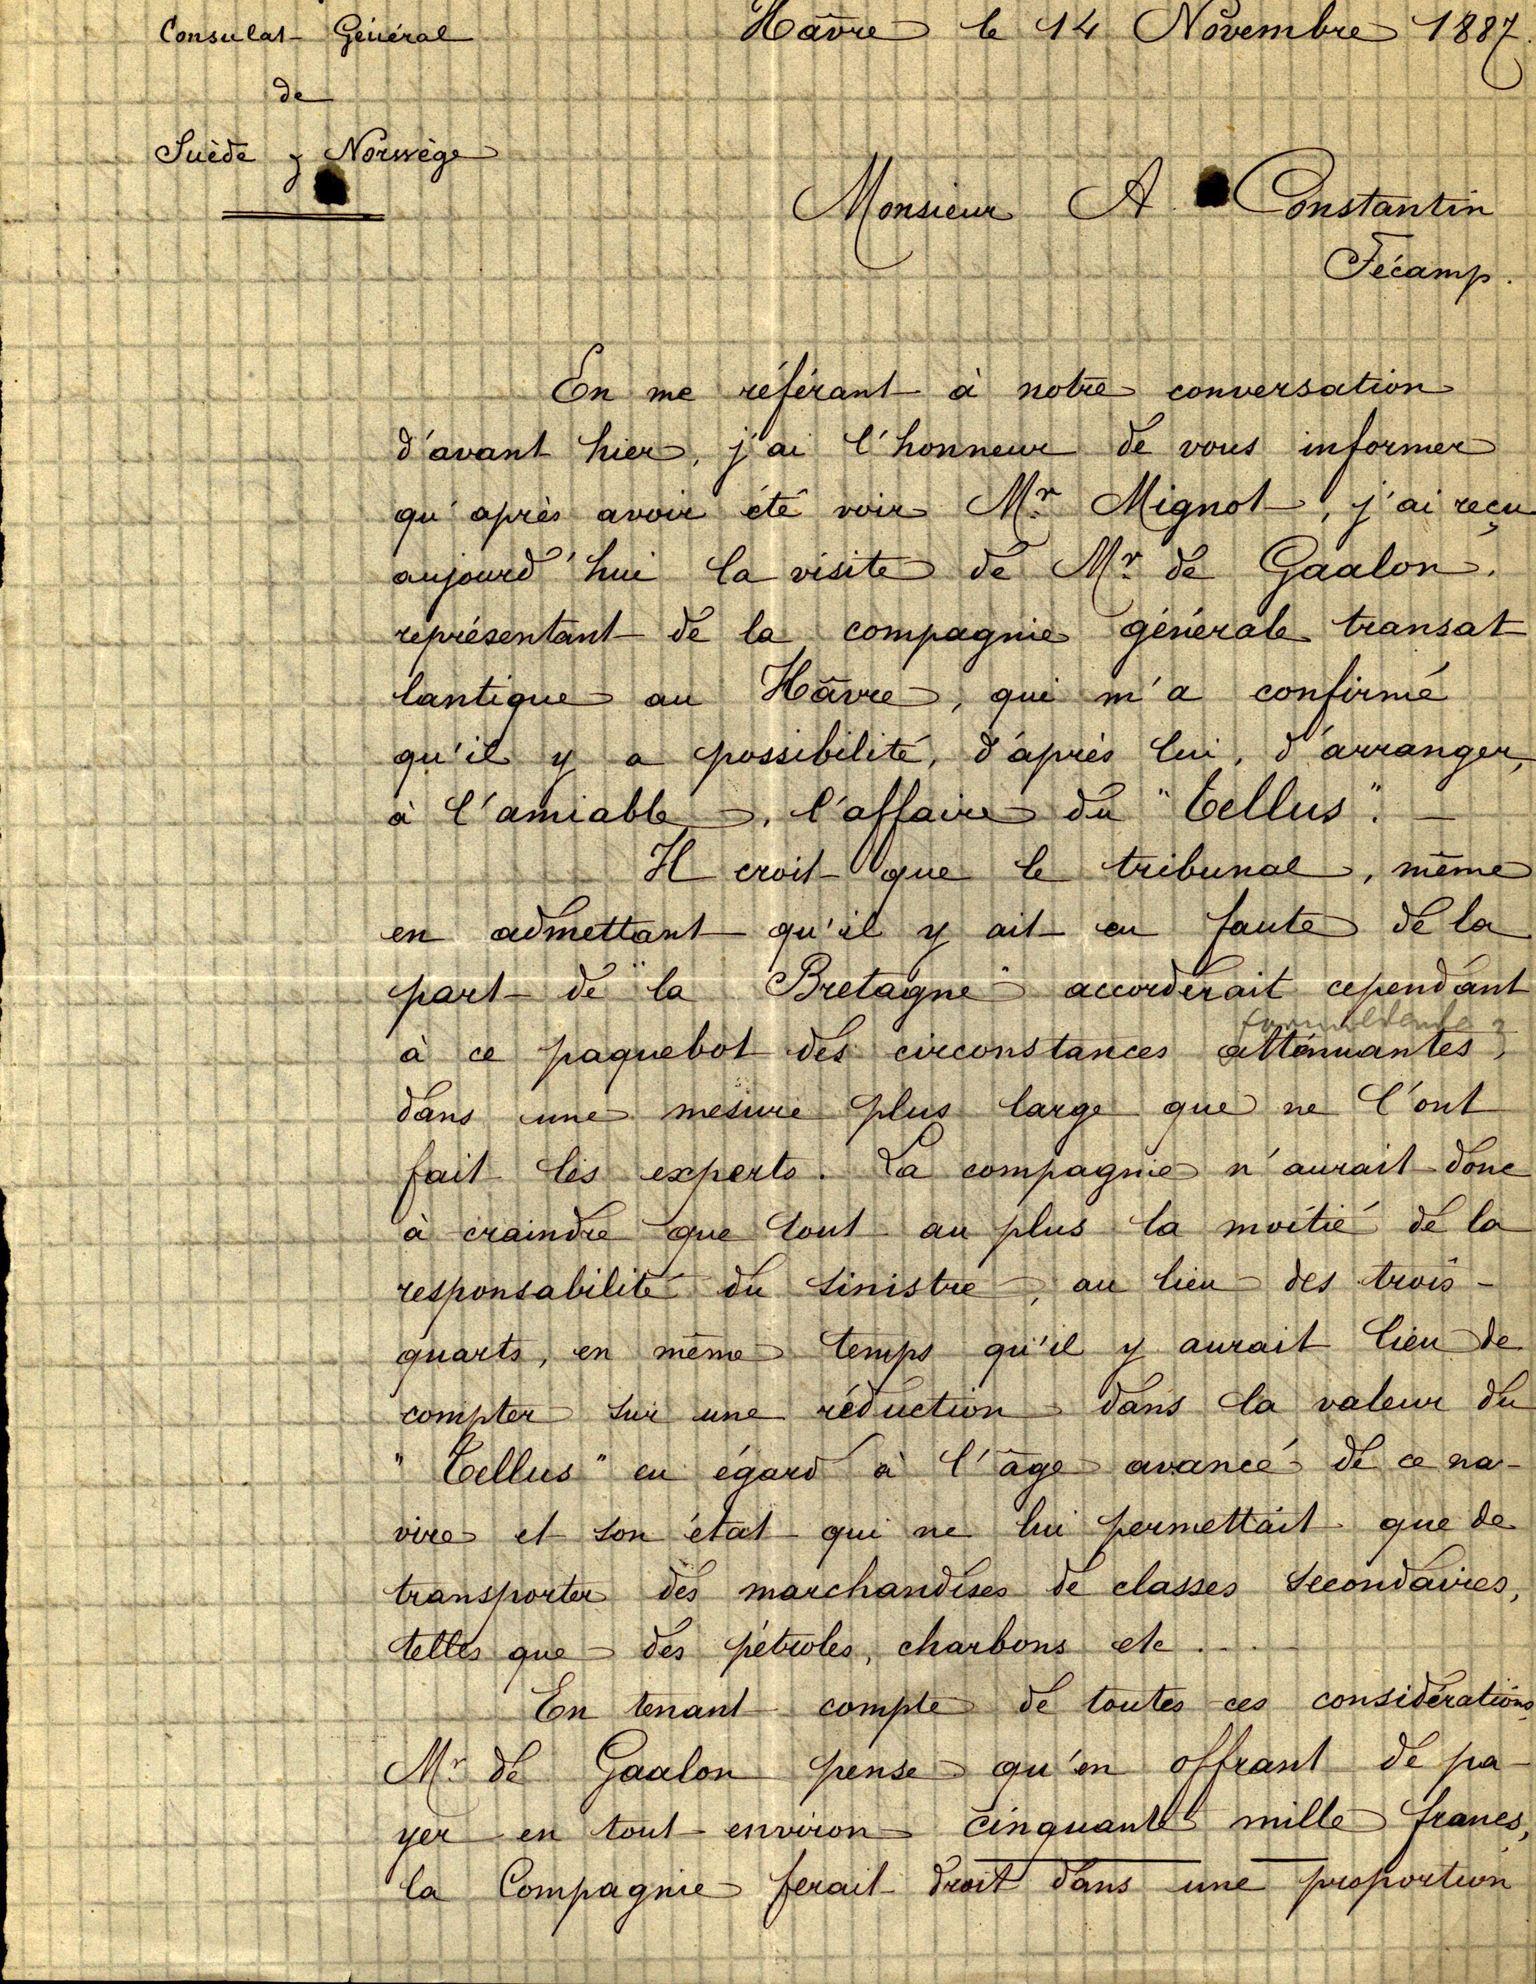 Consulat Général
de
Suède & Norwège
Hâvre le 14 Novembre 1887.
Monsieur A. Constantin
Fécamp.
En me référant à notre conversation
d'avant hier, j'ai l'honneur de vous informer
qu'après avoir été voir Mr. Mignot, j'ai reçu
aujourd'hui la visite de Mr. de Gaalon,
représentant de la compagnie générale transat
lantique au Hâvre, qui m'a confirmé
qu'il y a possibilité, d'après lui, d'arranger,
à l'amiable, l'affaire du "Tellus". —
Il croit que le tribunal, même
en admettant qu'il y ait eu faute de la
part de "la Bretagne" accorderait cependant
à ce paquebot des circonstances atténuantes,
dans une mesure plus large que ne l'ont
fait les experts. La compagnie n'aurait donc
à craindre que tout au plus la moitié de la
responsabilité du sinistre, au lieu des trois-
quarts, en même temps qu'il y aurait lieu de
compter sur une réduction dans la valeur du
"Tellus" eu égard à l'âge avancé de ce na-
vire et son état qui ne lui permettait que de
transporter des marchandises de classes secondaires,
telles que des pétroles, charbons etc...
En tenant compte de toutes ces considérations,
Mr. de Gaalon pense qu'en offrant de pa-
yer en tout environ cinquante mille francs,
la Compagnie ferait droit dans une proportion